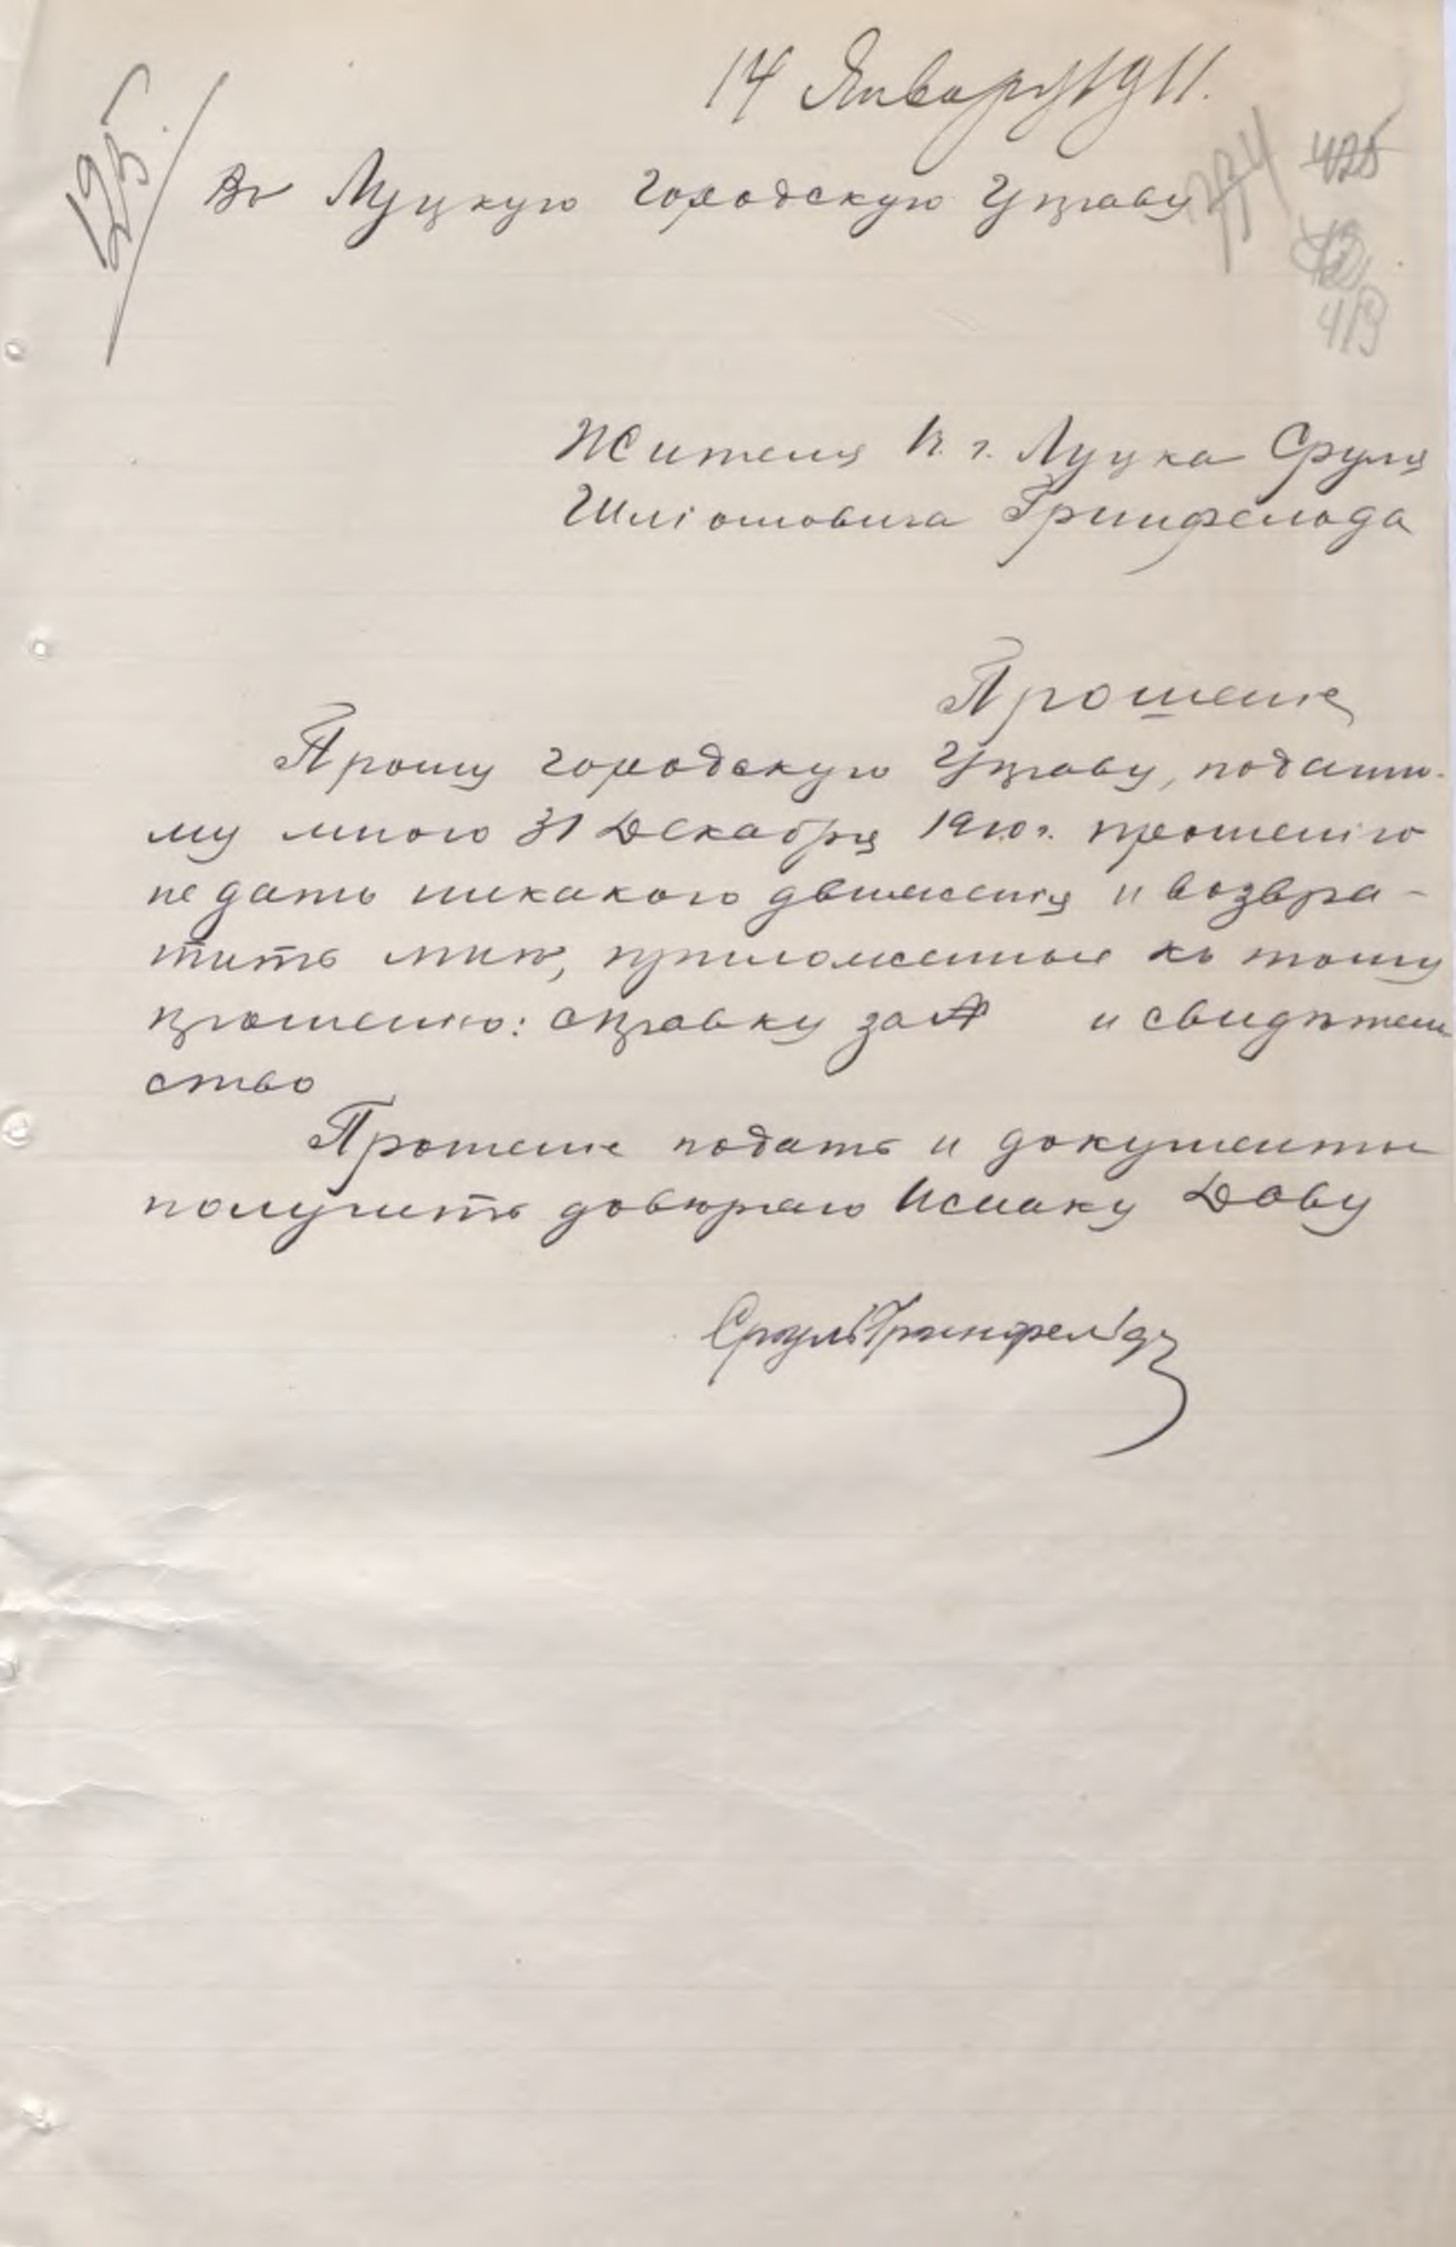 14 Января 1911.
125.
Въ Луцкую Городскую Управу
425
413
Жителя г. Луцка Сруля
Шліомовича Гринфельда
Прошеніе
Прошу Городскую Управу, поданно-
му мною 31 Декабря 1910 г. прошенію
не дать никакого движенія и возвра-
тить мнѣ, приложенные къ тому
прошенію: справку за № и свидѣтель
ство
Прошеніе подать и документы
получить довѣряю Исааку Дову
Сруль Гринфельдъ